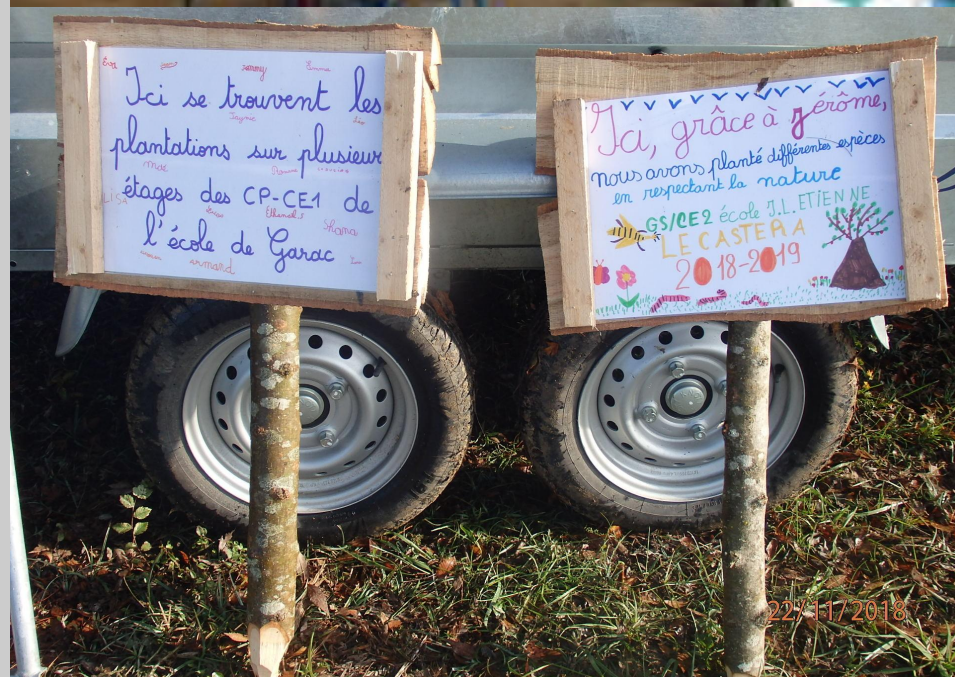 Emma
Ici se trouvent les
Jayme Léo
plantations sur plusieur
Mae
LISA étages des CP-CE1 de
Shana
l'école de Garac
armand
Ici, grâce à jérôme,
nous avons planté différentes espèces
en respectant la nature
GS/CE2 école J.L. ETIENNE
LE CASTERA
2018-2019
22/11/2018